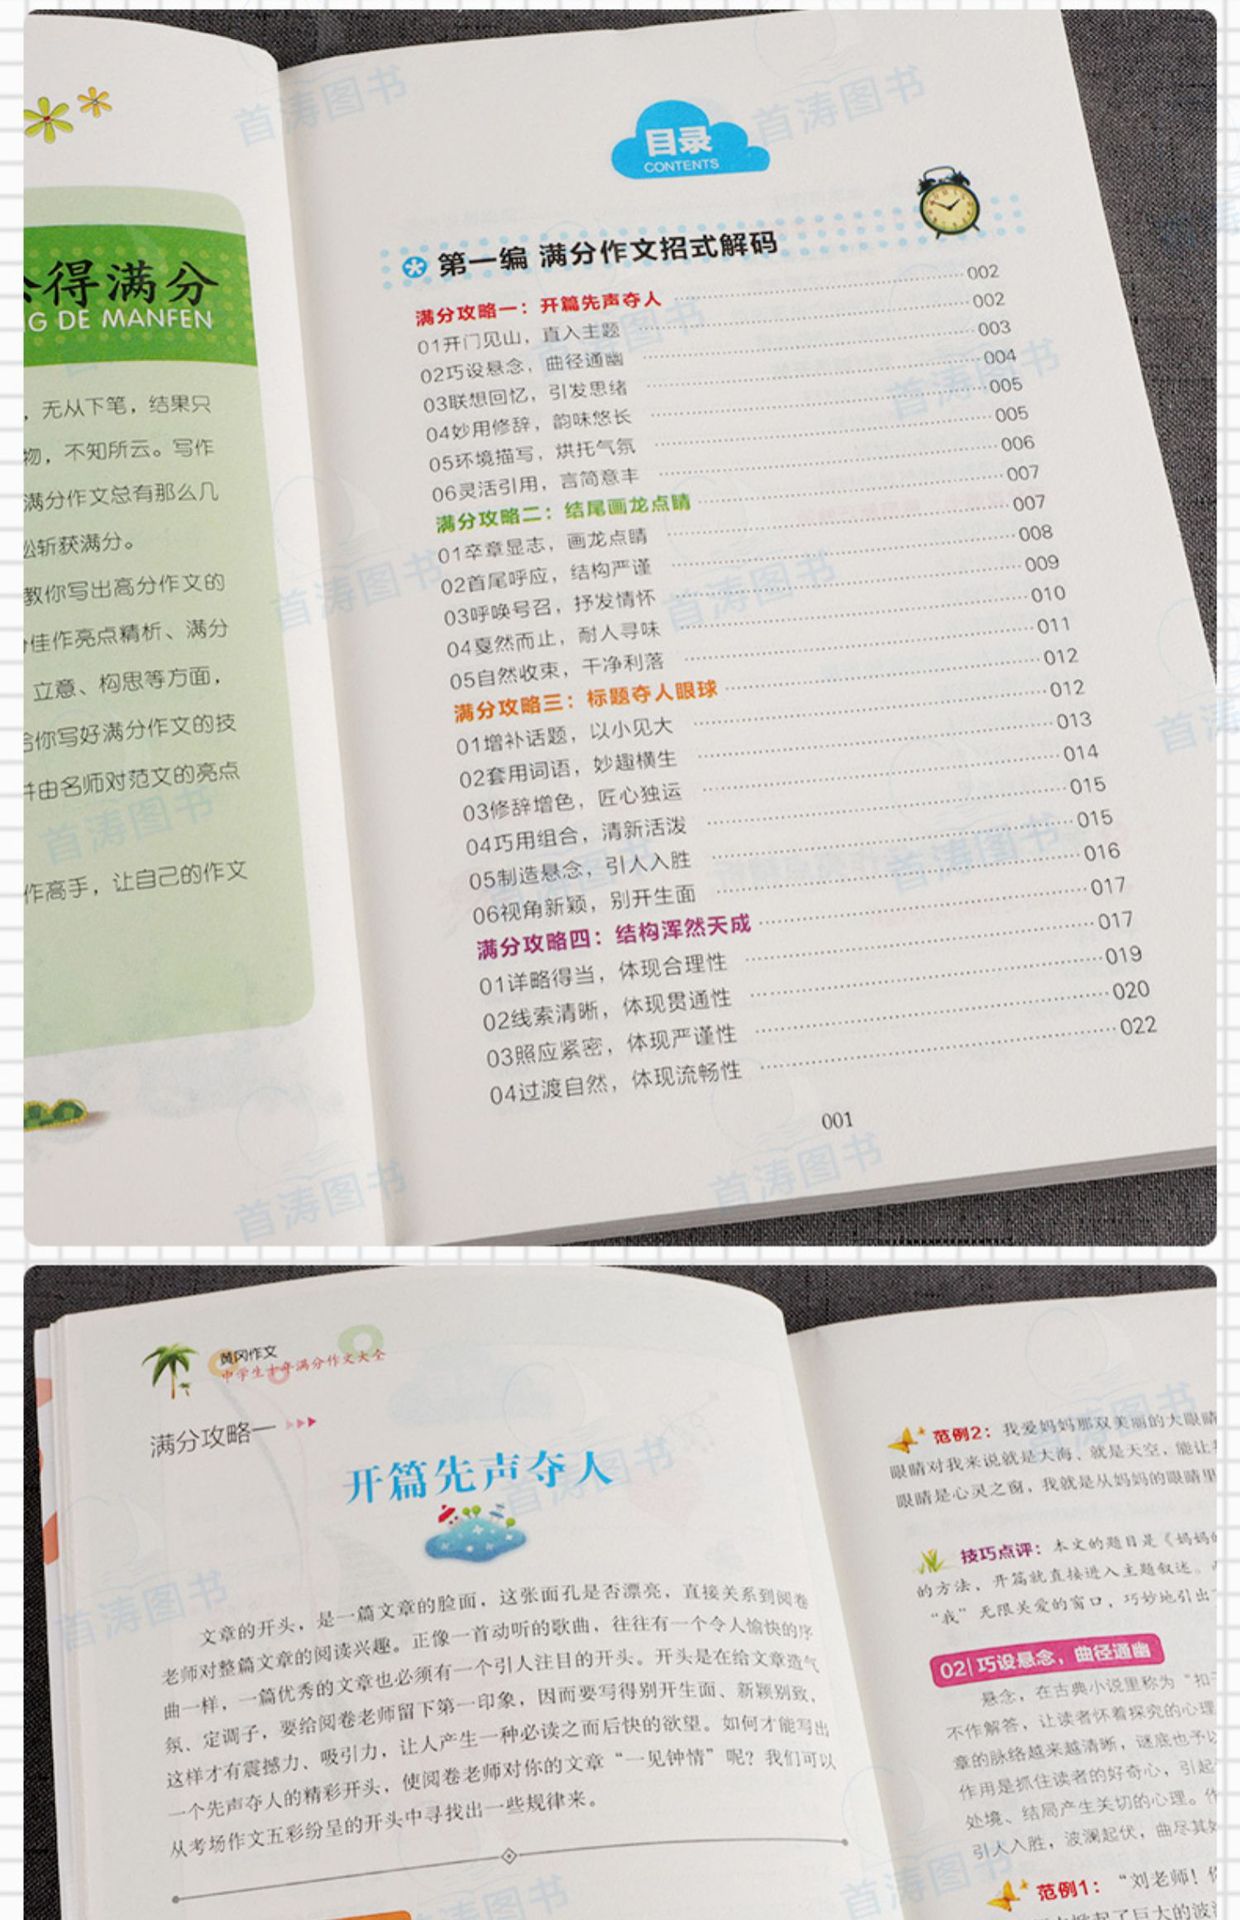 得满分
G DE MANFEN
，无从下笔，结果只
物，不知所云。写作
满分作文总有那么几
松斩获满分。
教你写出高分作文的
佳作亮点精析、满分
立意、构思等方面，
给你写好满分作文的技
并由名师对范文的亮点
作高手，让自己的作文
目录
CONTENTS
第一编 满分作文招式解码
满分攻略一：开篇先声夺人 002
01开门见山，直入主题 002
02巧设悬念，曲径通幽 003
03联想回忆，引发思绪 004
04妙用修辞，韵味悠长 005
05环境描写，烘托气氛 005
06灵活引用，言简意丰 006
满分攻略二：结尾画龙点睛 007
01卒章显志，画龙点睛 007
02首尾呼应，结构严谨 008
03呼唤号召，抒发情怀 009
04戛然而止，耐人寻味 010
05自然收束，干净利落 011
满分攻略三：标题夺人眼球 012
01增补话题，以小见大 012
02套用词语，妙趣横生 013
03修辞增色，匠心独运 014
04巧用组合，清新活泼 015
05制造悬念，引人入胜 015
06视角新颖，别开生面 016
满分攻略四：结构浑然天成 017
01详略得当，体现合理性 017
02线索清晰，体现贯通性 019
03照应紧密，体现严谨性 020
04过渡自然，体现流畅性 022
001
黄冈作文
中学生十年满分作文大全
满分攻略一
开篇先声夺人
文章的开头，是一篇文章的脸面，这张面孔是否漂亮，直接关系到阅卷
老师对整篇文章的阅读兴趣。正像一首动听的歌曲，往往有一个令人愉快的序
曲一样，一篇优秀的文章也必须有一个引人注目的开头。开头是在给文章造气
氛、定调子，要给阅卷老师留下第一印象，因而要写得别开生面、新颖别致，
这样才有震撼力、吸引力，让人产生一种必读之而后快的欲望。如何才能写出
一个先声夺人的精彩开头，使阅卷老师对你的文章“一见钟情”呢？我们可以
从考场作文五彩纷呈的开头中寻找出一些规律来。
范例2：我爱妈妈那双美丽的大眼睛
眼睛对我来说就是大海、就是天空，能让
眼睛是心灵之窗，我就是从妈妈的眼睛里
技巧点评：本文的题目是《妈妈的
的方法，开篇就直接进入主题叙述。
“我”无限关爱的窗口，巧妙地引出
02 巧设悬念，曲径通幽
悬念，在古典小说里称为“扣子
不作解答，让读者怀着探究的心理
章的脉络越来越清晰，谜底也予以
作用是抓住读者的好奇心，引起
处境、结局产生关切的心理。作
引人入胜，波澜起伏，曲尽其妙
范例1：“刘老师！你
掀起了巨大的波
首涛图书